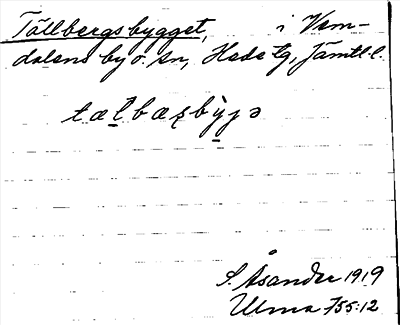 Tällbergsbygget, i Vem-
dalens by o. sn, Hede tg, Jämtl. l.
tælbæʂbỳjə
S. Åsander 1919
Ulma 755:12